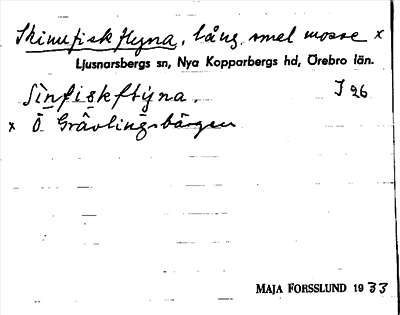 Skinnfiskflyna, lång, smel mosse x
Ljusnarsbergs sn, Nya Kopparbergs hd, Örebro län.
Sìnfiskflỳna. I 26
x Ö Grävlingsbärgen
MAJA FORSSLUND 1933